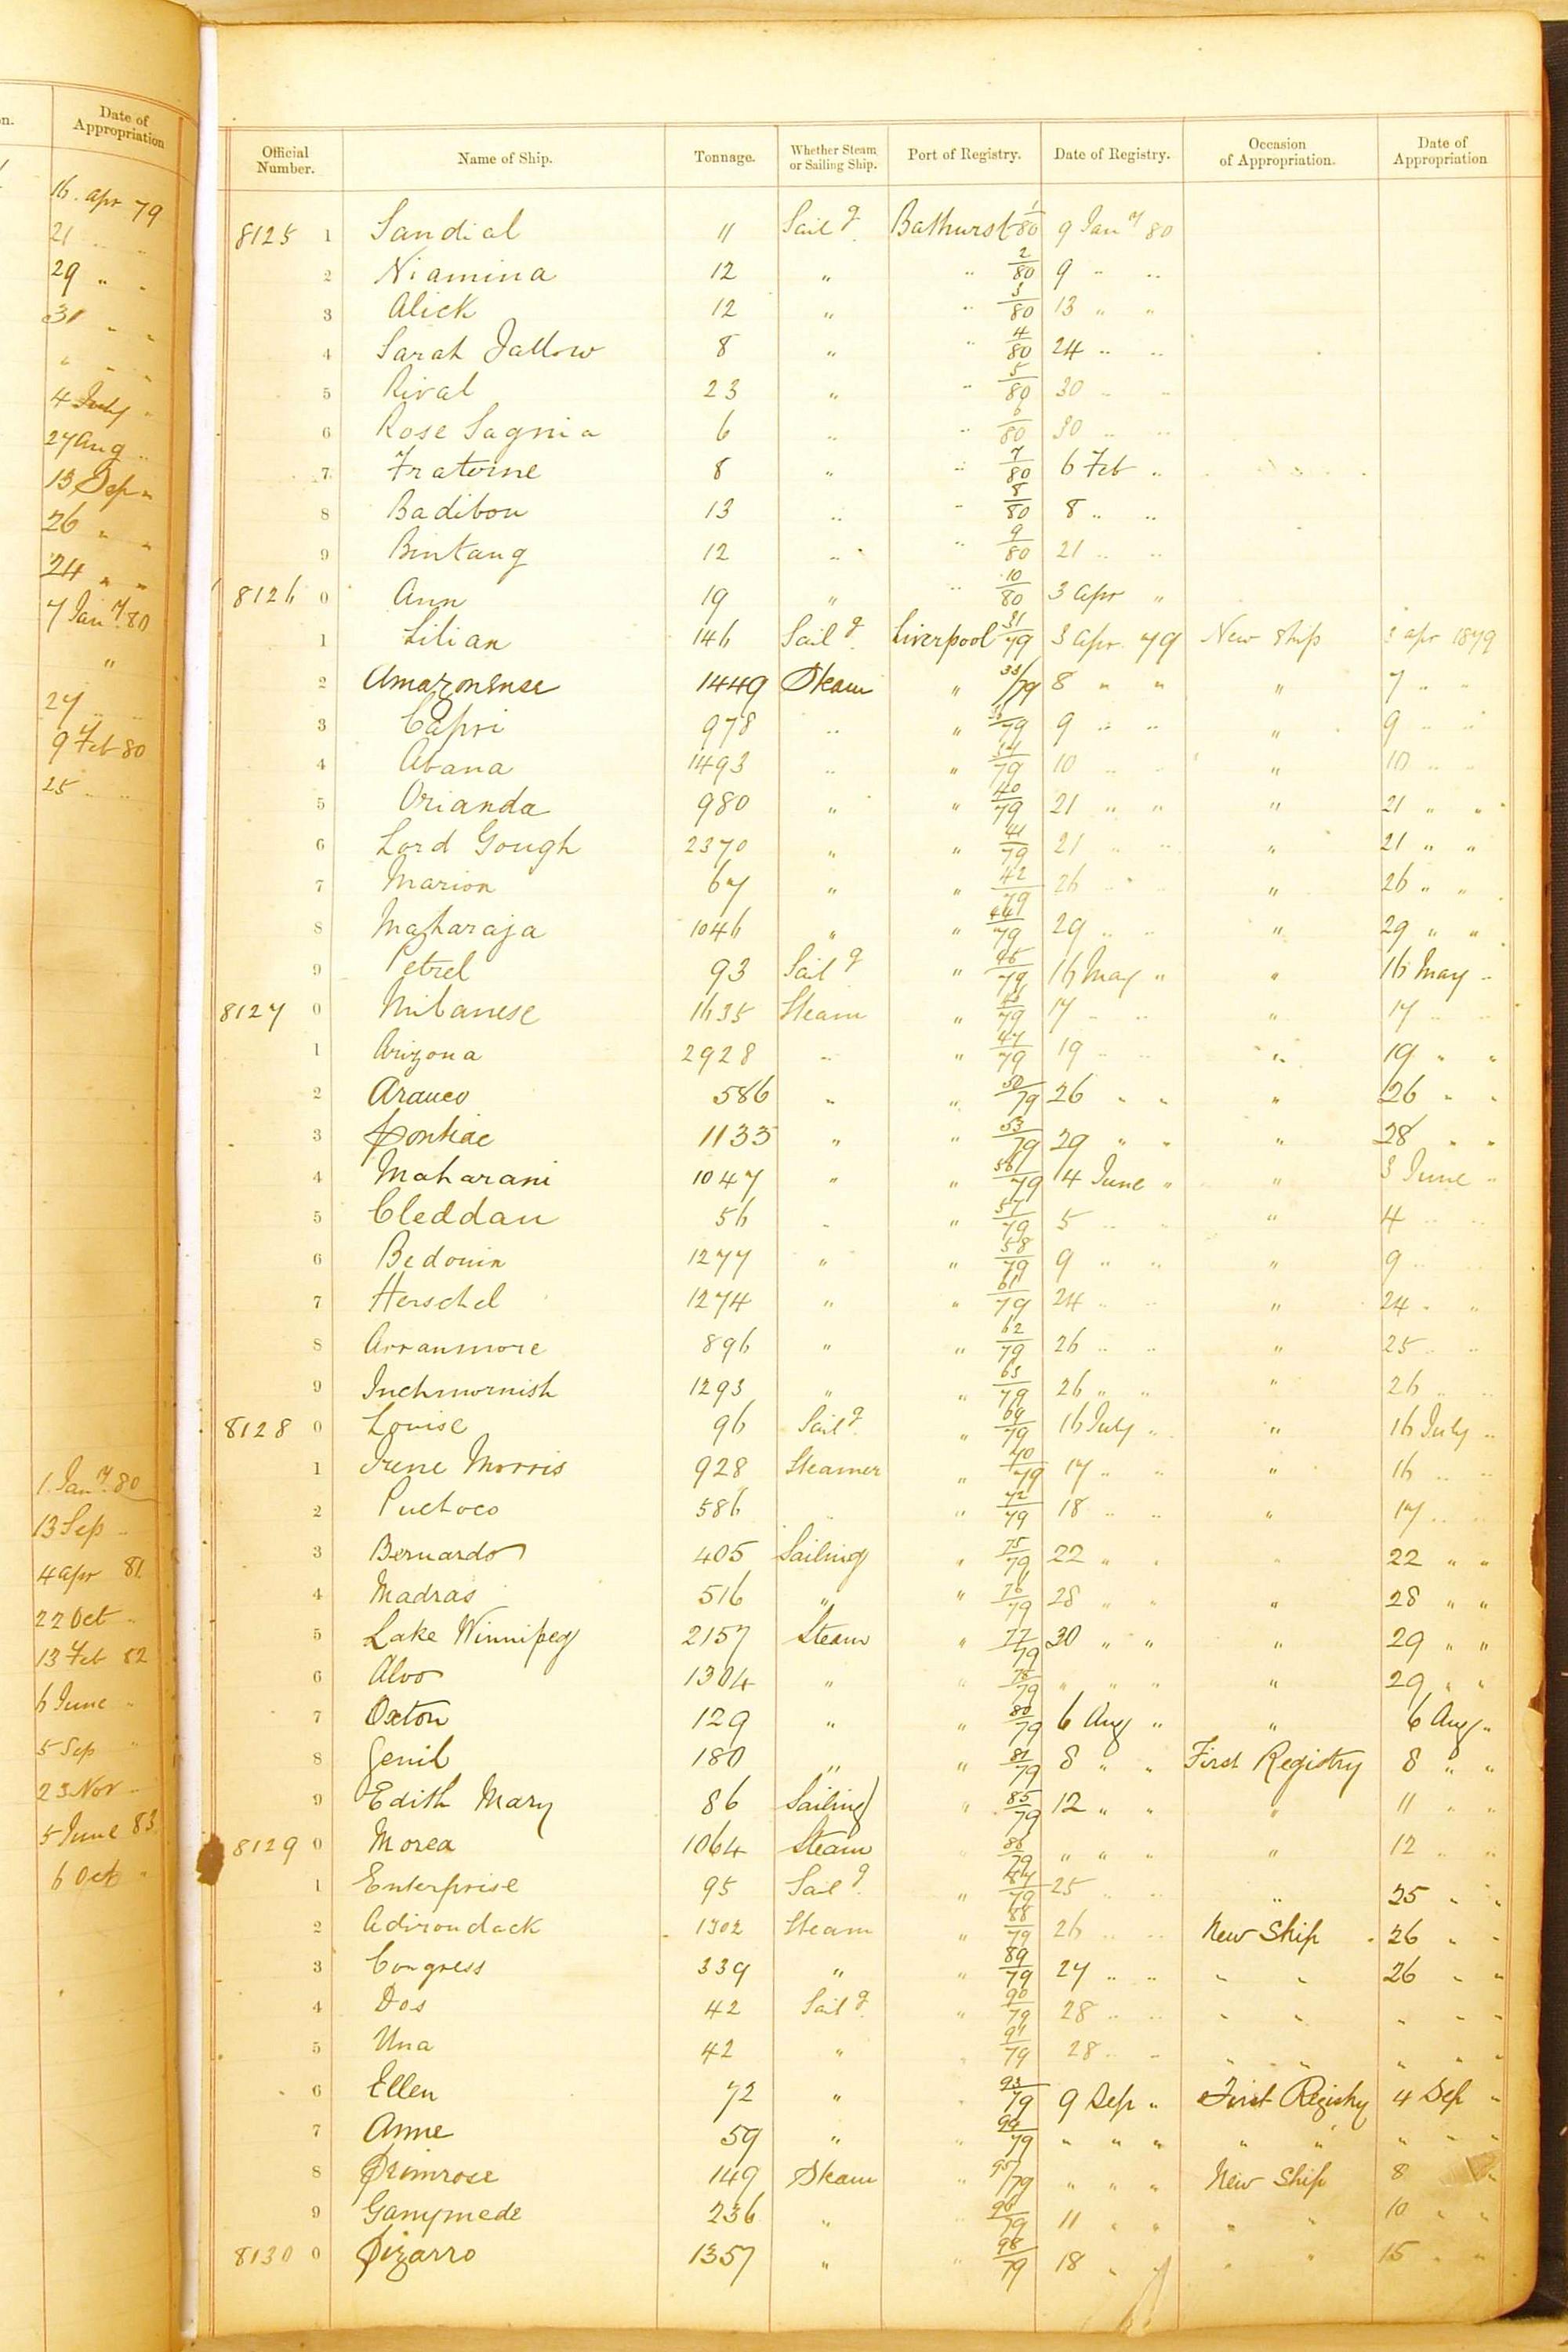 n.
Date of
Appropriation
16. apr 79
21 .. ..
29 " "
31 " "
" " "
4 July "
27 Aug ..
13 Sep "
26 " "
24 " "
7 Jany. 80
"
27 .. ..
9 Feb 80
25 .. ..
1. Jany. 80
13 Sep ..
4 apr 81
22 Oct ..
13 Feb 82
6 June "
5 Sep "
23 Nov ..
5 June 83.
6 Oct "
Official Number. Name of Ship. Tonnage. Whether Steam or Sailing Ship. Port of Registry. Date of Registry. Occasion of Appropriation. Date of Appropriation
8125 1 Sandial 11 Sailg. Bathurst 1/80 9 Jany 80
2 Niamina 12 " .. 2/80 9 .. ..
3 Alick 12 " .. 3/80 13 " "
4 Sarah Jallow 8 " .. 4/80 24 .. ..
5 Rival 23 " .. 5/80 30 .. ..
6 Rose Sagnia 6 .. .. 6/80 30 .. ..
7 Fraterne 8 " .. 7/80 6 Feb ..
8 Badibou 13 .. .. 8/80 8 .. ..
9 Bintang 12 .. .. 9/80 21 .. ..
8126 0 Ann 19 " .. 10/80 3 apr "
1 Lilian 146 Sailg. Liverpool 31/79 3 apr. 79 New Ship 3 apr 1879
2 Amazonense 1449 Steam " 33/79 8 " " " 7 .. ..
3 Capri 978 .. " /79 9 .. .. " 9 .. ..
4 Abana 1493 .. " /79 10 .. .. " 10 .. ..
5 Orianda 980 " " 40/79 21 .. " " 21 " "
6 Lord Gough 2370 " " 41/79 21 .. .. " 21 " "
7 Marion 67 " " 42/79 26 .. .. " 26 " "
8 Maharaja 1046 " " 44/79 29 .. .. " 29 " "
9 Petrel 93 Sailg " 45/79 16 May " " 16 May ..
8127 0 Milanese 1635 Steam " /79 17 .. .. " 17 .. ..
1 Arizona 2928 .. " 47/79 19 .. .. " 19 " "
2 Arauco 586 " " 50/79 26 " " " 26 " "
3 Pontiac 1133 " " 53/79 29 " " " 28 " "
4 Maharani 1047 " " 56/79 4 June " " 3 June ..
5 Cleddau 56 .. " 57/79 5 .. .. " 4 .. ..
6 Bedouin 1277 " " 58/79 9 " .. " 9 .. ..
7 Herschel 1274 " " 61/79 24 .. .. " 24 . "
8 Arranmore 896 " " 62/79 26 .. .. " 25 .. ..
9 Inchmornish 1293 " " 63/79 26 " " " 26 .. ..
8128 0 Louise 96 Sailg. " 69/79 16 July " " 16 July ..
1 Irene Morris 928 Steamer " 70/79 17 .. .. " 16 .. ..
2 Puchoco 586 .. " 72/79 18 .. .. " 17 .. ..
3 Bernardo 405 Sailing " 75/79 22 " " " 22 " "
4 Madras 516 " " 76/79 28 " " " 28 " "
5 Lake Winnipeg 2157 Steam " 77/79 30 " " " 29 " "
6 Alvo 1304 " " 78/79 " " " " 29 " "
7 Oxton 129 " " 80/79 6 Aug " " 6 Aug "
8 Genil 180 " " 81/79 8 " " First Registry 8 " "
9 Edith Mary 86 Sailing " 85/79 12 " " " 11 " "
8129 0 Morea 1064 Steam " 86/79 " " " " 12 .. ..
1 Enterprise 95 Sailg. " 87/79 25 .. .. " 25 " "
2 Adirondack 1302 Steam " 88/79 26 .. .. New Ship 26 " "
3 Congress 339 " " 89/79 27 .. .. " " 26 " "
4 Dos 42 Sailg. " 90/79 28 .. .. " " " " "
5 Una 42 " " 91/79 28 .. .. " " " " "
6 Ellen 72 " " 93/79 9 Sep " First Registry 4 Sep "
7 Anne 59 " " 94/79 " " " " " " " "
8 Primrose 149 Steam " 95/79 " " " New Ship 8 "
9 Ganymede 236 " " 96/79 11 " " " " 10 " "
8130 0 Pizarro 1357 " " 98/79 18 " " " " 15 " "